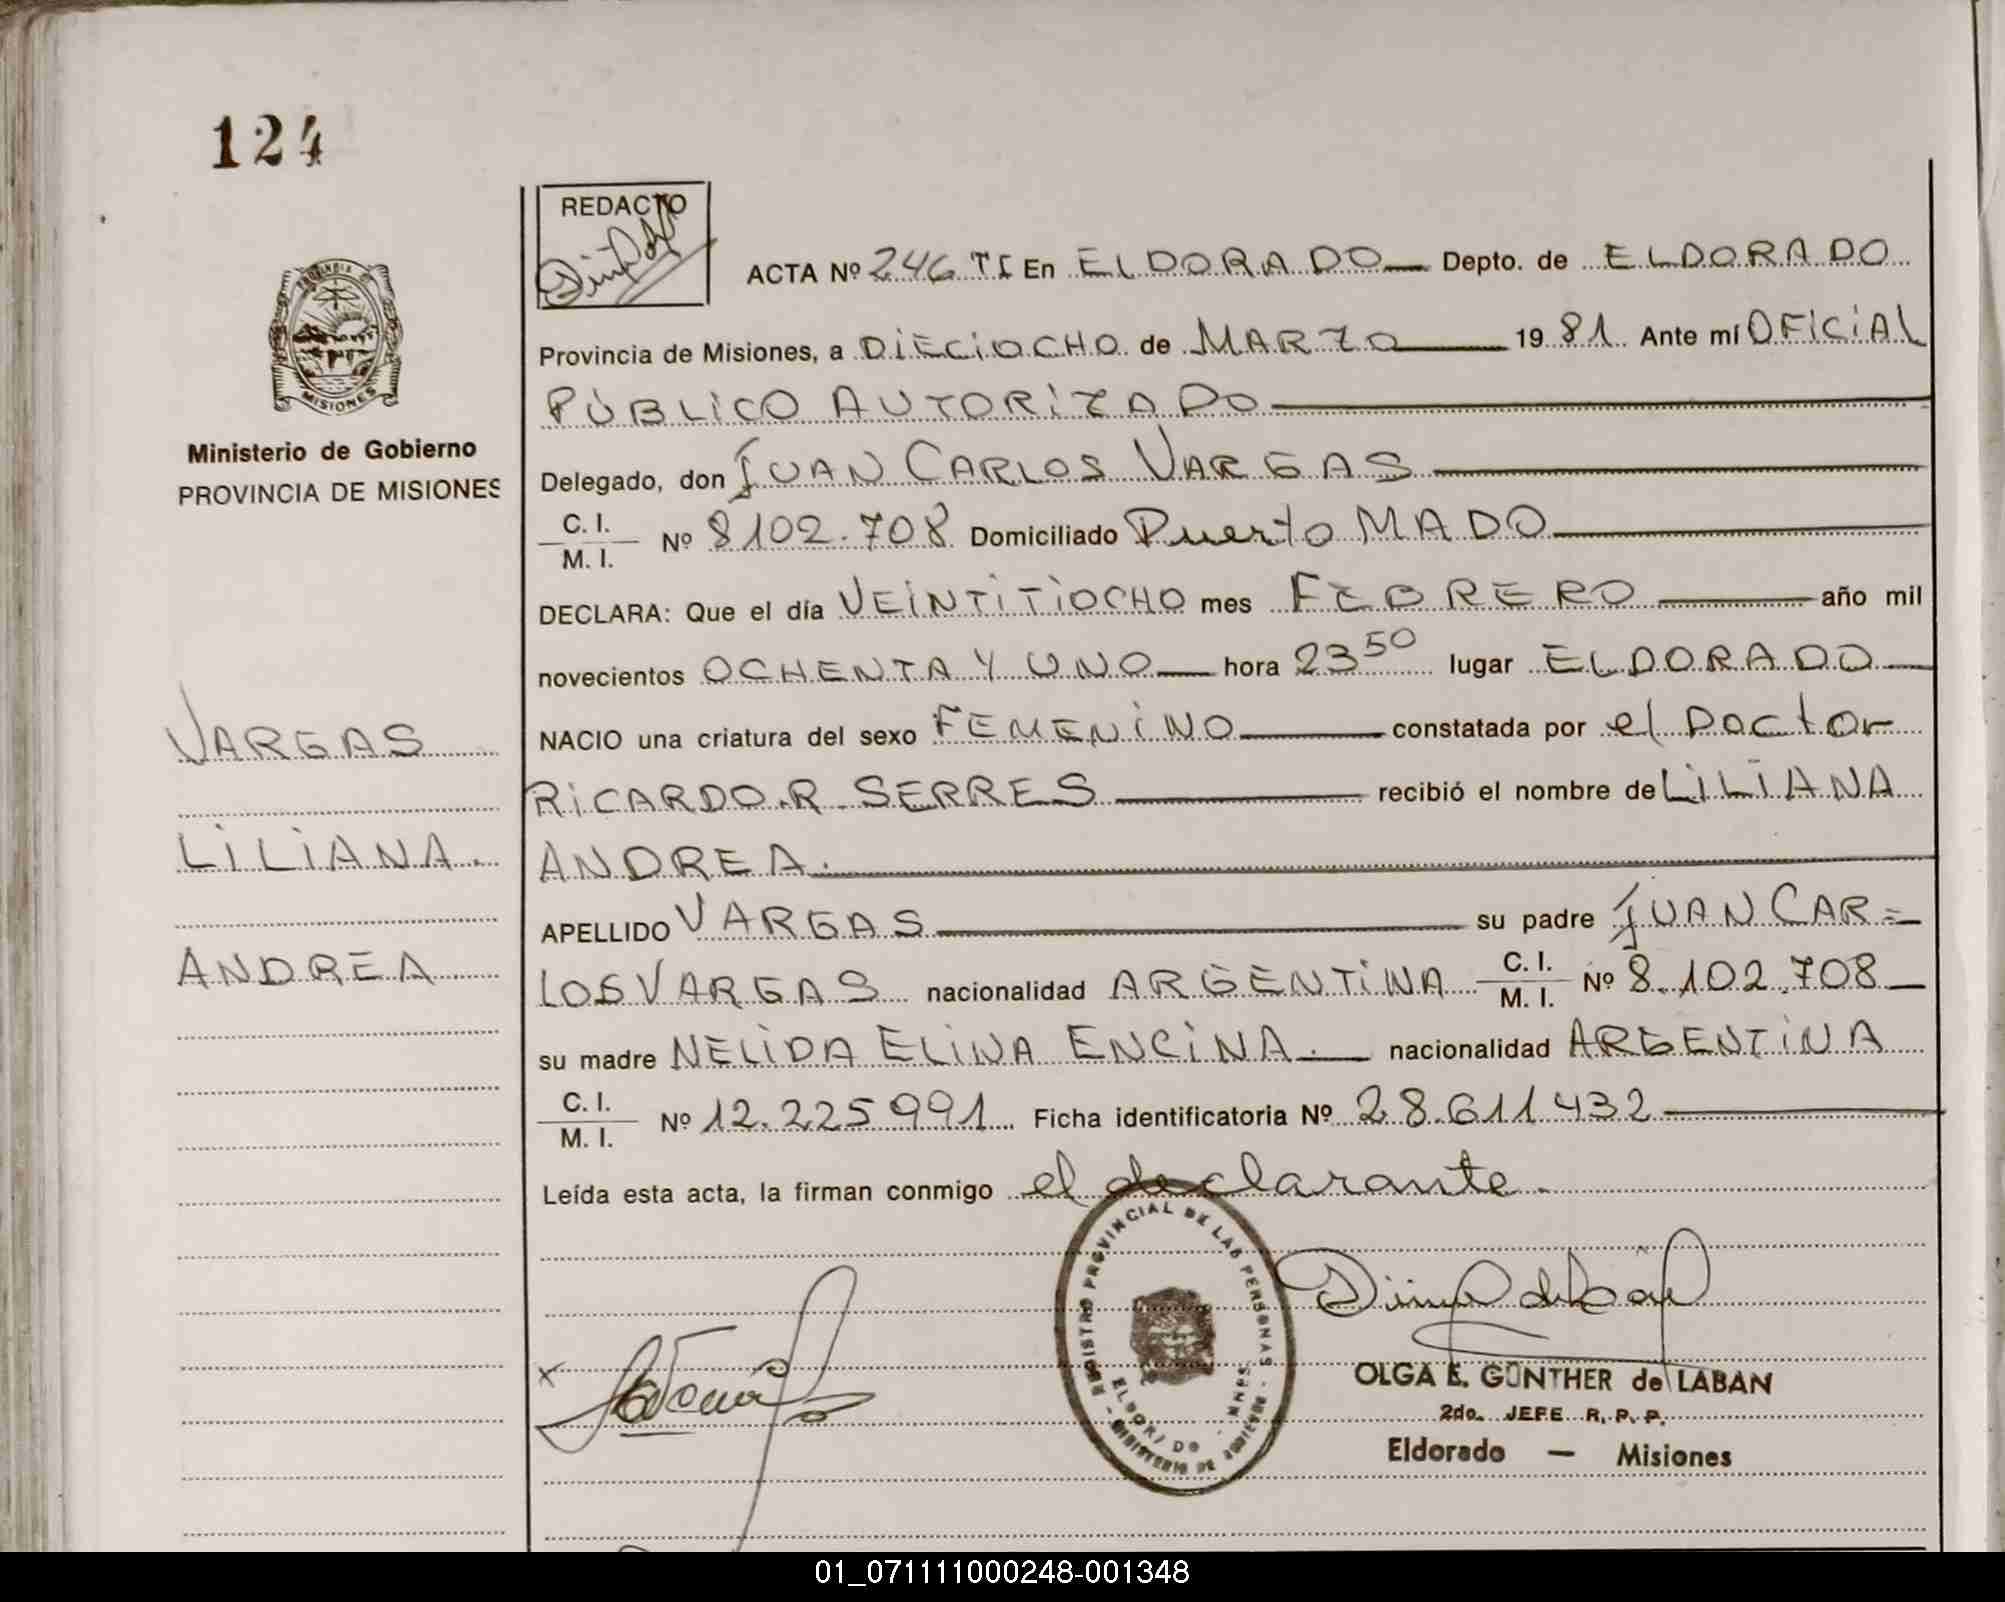 124
REDACTO
ACTA Nº 246 TI En ELDORADO Depto. de ELDORADO
Provincia de Misiones, a DiECiOCHO de MARZO 19 81 Ante mí OFiCiAL
PÚBLiCO AUTORiZADO
Delegado, don JUAN CARLOS VARGAS
C. I.
M. I. Nº 8102.708 Domiciliado Puerto MADO
DECLARA: Que el día VEiNTiTiOCHO mes FEBRERO año mil
novecientos OCHENTA Y UNO hora 23 50 lugar ELDORADO
NACIO una criatura del sexo FEMENiNO constatada por el Doctor
RiCARDO.R. SERRES recibió el nombre de LiLiANA
ANDREA.
APELLIDO VARGAS su padre JUAN CAR=
LOS VARGAS nacionalidad ARGENTiNA C. I.
M. I. Nº 8.102.708
su madre NELiDA ELiNA ENCiNA. nacionalidad ARGENTiNA
C. I.
M. I. Nº 12.225991 Ficha identificatoria Nº 28.611432
Leída esta acta, la firman conmigo el declarante.
MISIONES
Ministerio de Gobierno
PROVINCIA DE MISIONES
VARGAS
LiLiANA.
ANDREA
REGISTRO PROVINCIAL DE LAS PERSONAS
OLGA E. GÜNTHER de LABAN
2do. JEFE R. P. P.
Eldorado — Misiones
01_071111000248-001348